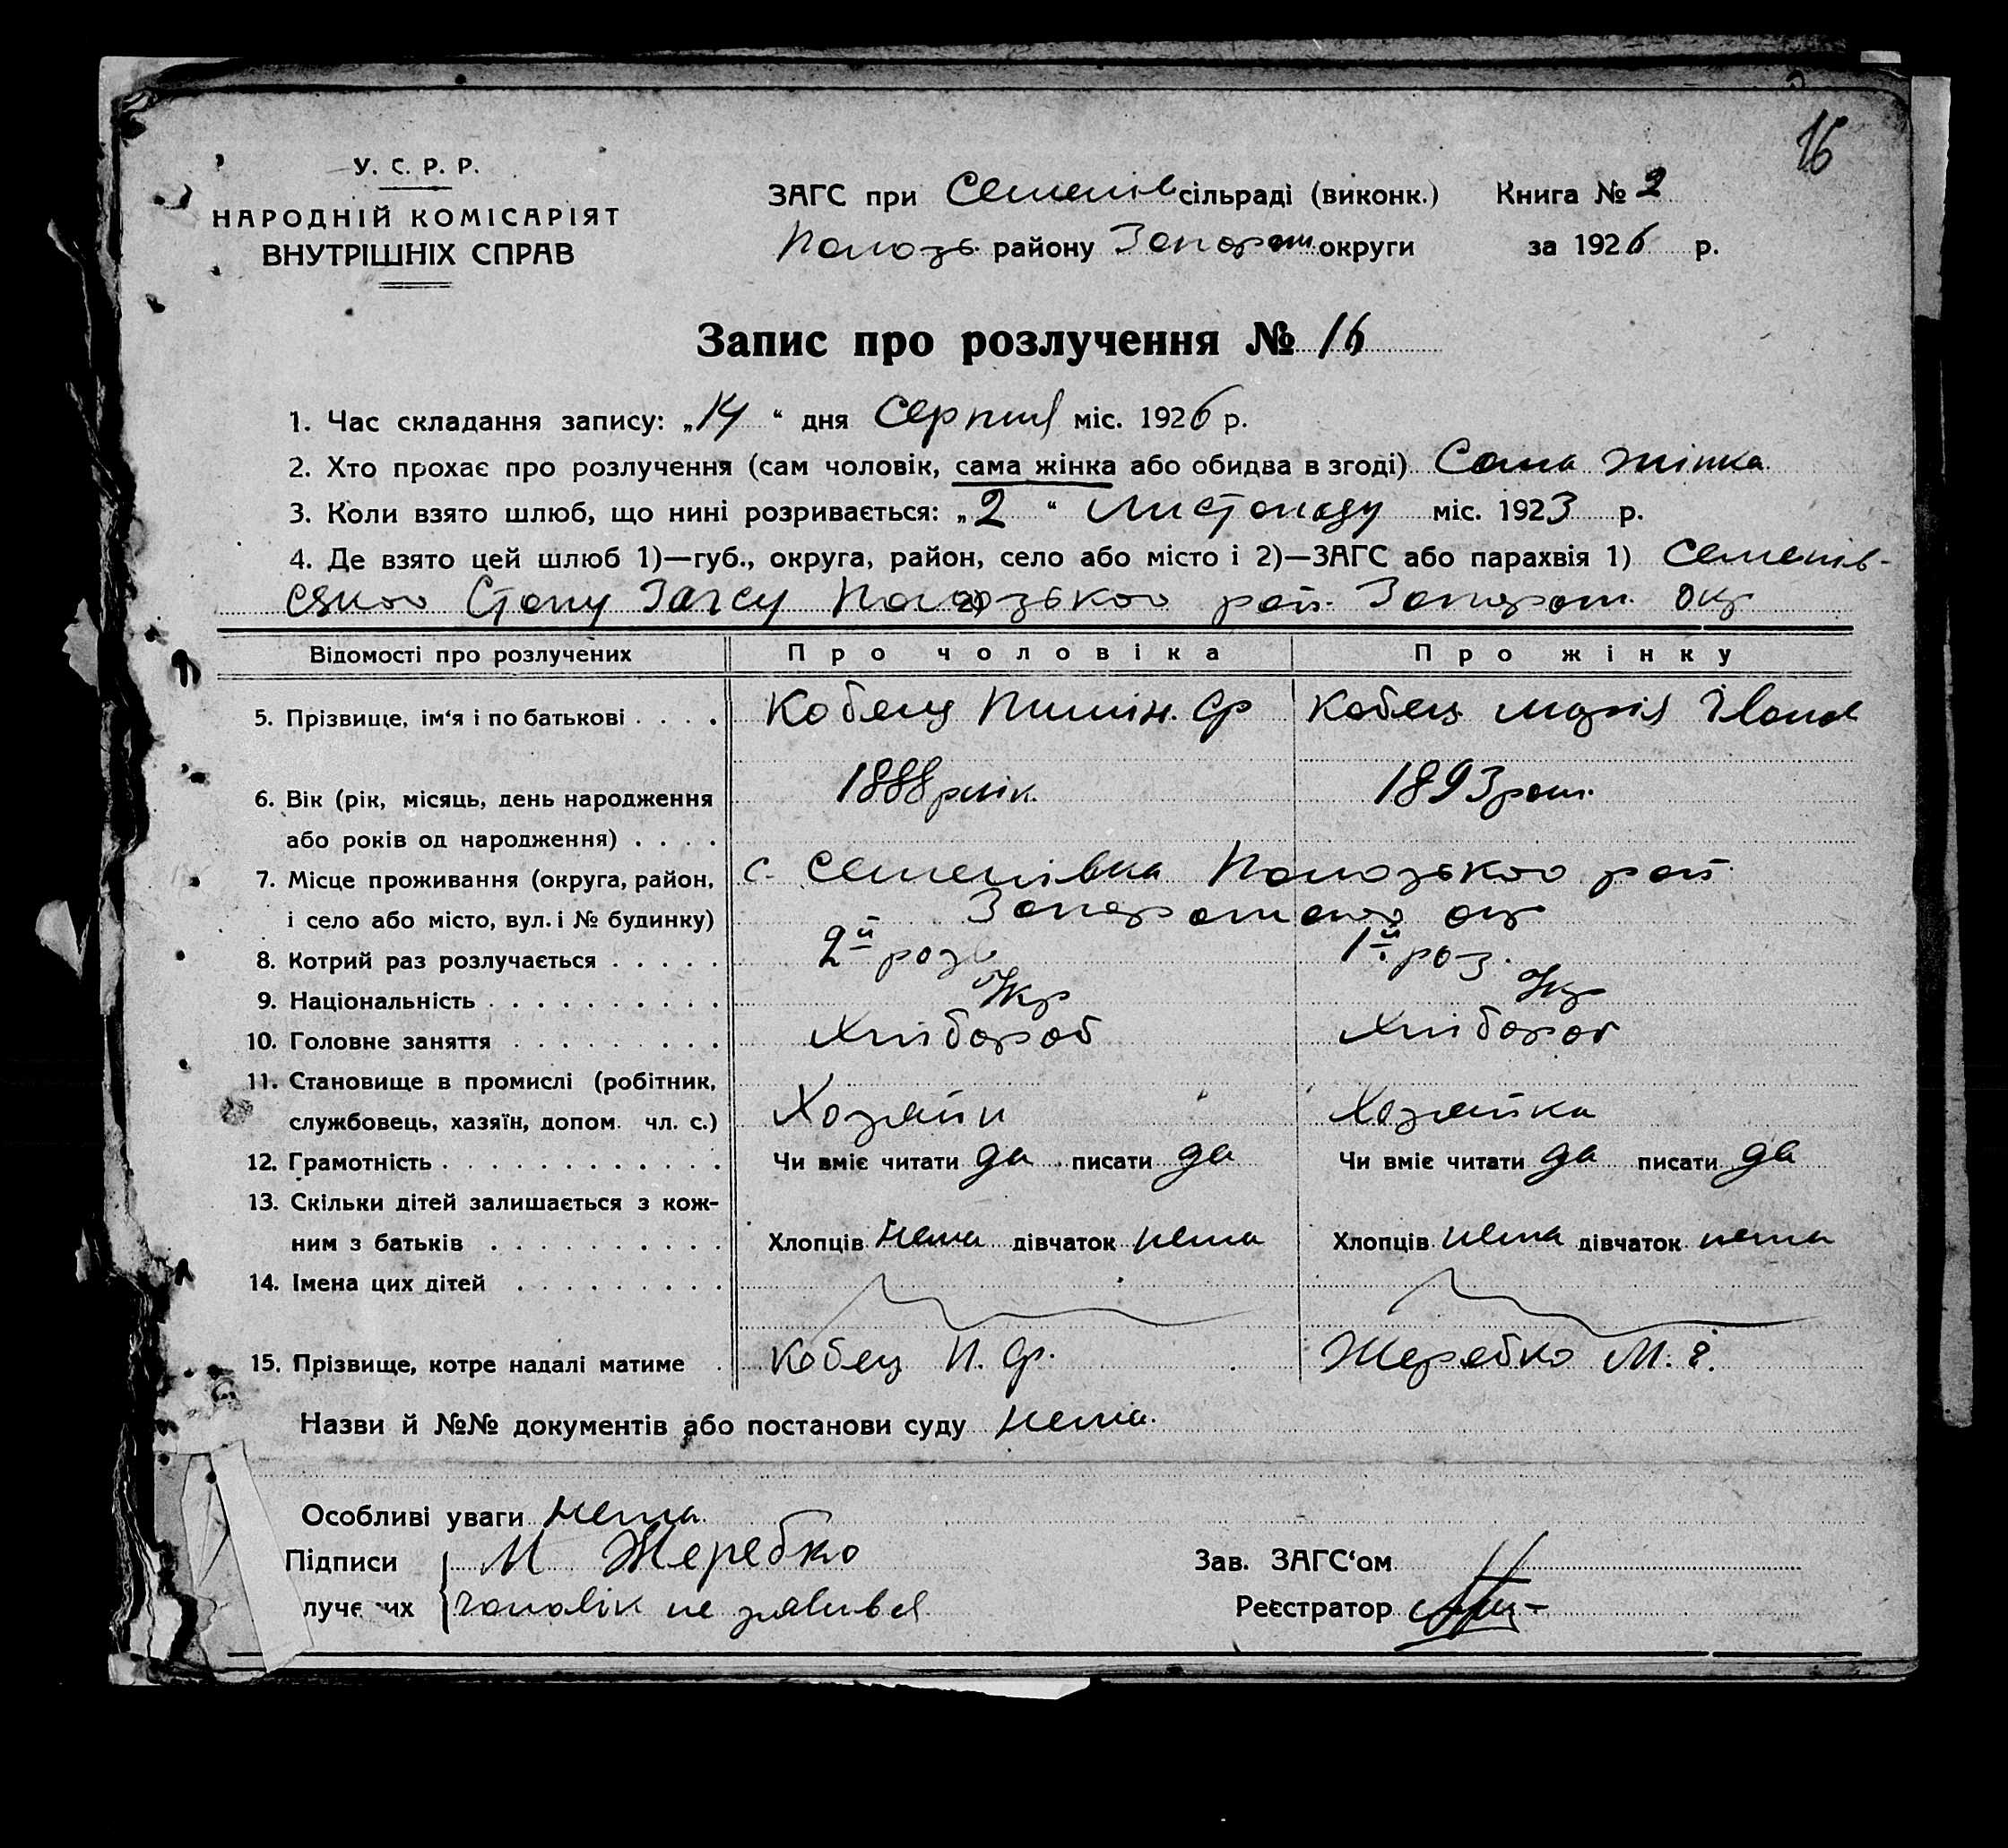 16
У. С. Р. Р.
НАРОДНІЙ КОМІСАРІЯТ
ВНУТРІШНІХ СПРАВ
ЗАГС при Семенів сільраді (виконк.) Книга № 2
Полозь. району Запорож. округи за 1926 р.
Запис про розлучення № 16
1. Час складання запису: „14“ дня Серпня міс. 1926 р.
2. Хто прохає про розлучення (сам чоловік, сама жінка або обидва в згоді) Сама жінка
3. Коли взято шлюб, що нині розривається: „2“ Листопаду міс. 1923 р.
4. Де взято цей шлюб 1)—губ., округа, район, село або місто і 2)—ЗАГС або парахвія 1) Семенів-
ського Столу Загсу Полозького рай. Запорож. окр
Відомості про розлучених Про чоловіка Про жінку
5. Прізвище, ім‘я і по батькові . . . . Кобець Ф Кобець Марія
6. Вік (рік, місяць, день народження 1888 1893
або років од народження) . . . .
7. Місце проживання (округа, район, с. Семенівка Полозького рай.
і село або місто, вул. і № будинку) Запорожского окр
8. Котрий раз розлучається . . . . . 2й роз 1й роз.
9. Національність . . . . . . . . . . Укр Укр
10. Головне заняття . . . . . . . . . Хлібороб Хлібороб
11. Становище в промислі (робітник,
службовець, хазяїн, допом. чл. с.) Хозяйн Хозяйка
12. Грамотність . . . . . . . . . . . . Чи вміє читати да писати да Чи вміє читати да писати да
13. Скільки дітей залишається з кож-
ним з батьків . . . . . . . . . . Хлопців нема дівчаток нема Хлопців нема дівчаток нема
14. Імена цих дітей . . . . . . . . .
15. Прізвище, котре надалі матиме . Кобець П. Ф. Жеребко М. І.
Назви й №№ документів або постанови суду нема.
Особливі уваги нема.
Підписи М Жеребко
луче их чоловік не зявився
Зав. ЗАГС‘ом
Реєстратор